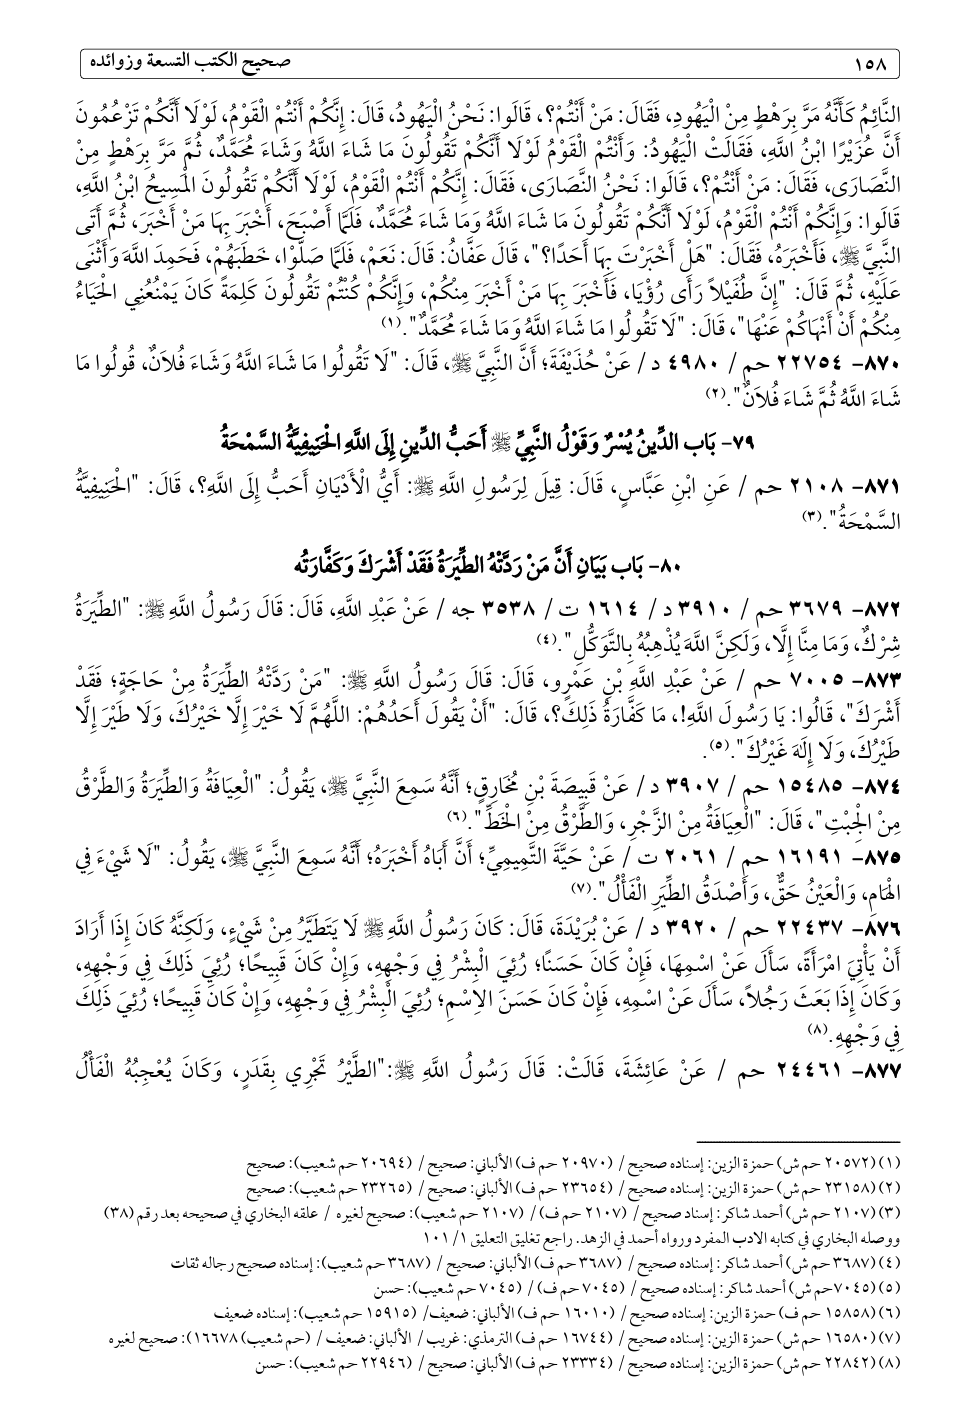 ١٥٨
صحيح الكتب التسعة وزوائده
النَّائِمُ كَأَنَّهُ مَرَّ بِرَهْطٍ مِنْ الْيَهُودِ، فَقَالَ: مَنْ أَنْتُمْ؟، قَالُوا: نَحْنُ الْيَهُودُ، قَالَ: إِنَّكُمْ أَنْتُمْ الْقَوْمُ، لَوْلَا أَنَّكُمْ تَزْعُمُونَ
أَنَّ عُزَيْرًا ابْنُ اللَّهِ، فَقَالَتْ الْيَهُودُ: وَأَنْتُمْ الْقَوْمُ لَوْلَا أَنَّكُمْ تَقُولُونَ مَا شَاءَ اللَّهُ وَشَاءَ مُحَمَّدٌ، ثُمَّ مَرَّ بِرَهْطٍ مِنْ
النَّصَارَى، فَقَالَ: مَنْ أَنْتُمْ؟، قَالُوا: نَحْنُ النَّصَارَى، فَقَالَ: إِنَّكُمْ أَنْتُمْ الْقَوْمُ، لَوْلَا أَنَّكُمْ تَقُولُونَ الْمَسِيحُ ابْنُ اللَّهِ،
قَالُوا: وَإِنَّكُمْ أَنْتُمْ الْقَوْمُ، لَوْلَا أَنَّكُمْ تَقُولُونَ مَا شَاءَ اللَّهُ وَمَا شَاءَ مُحَمَّدٌ، فَلَمَّا أَصْبَحَ، أَخْبَرَ بِهَا مَنْ أَخْبَرَ، ثُمَّ أَتَى
النَّبِيَّ ﷺ، فَأَخْبَرَهُ، فَقَالَ: "هَلْ أَخْبَرْتَ بِهَا أَحَدًا؟"، قَالَ عَفَّانُ: قَالَ: نَعَمْ، فَلَمَّا صَلَّوْا، خَطَبَهُمْ، فَحَمِدَ اللَّهَ وَأَثْنَى
عَلَيْهِ، ثُمَّ قَالَ: "إِنَّ طُفَيْلاً رَأَى رُؤْيَا، فَأَخْبَرَ بِهَا مَنْ أَخْبَرَ مِنْكُمْ، وَإِنَّكُمْ كُنْتُمْ تَقُولُونَ كَلِمَةً كَانَ يَمْنَعُنِي الْحَيَاءُ
مِنْكُمْ أَنْ أَنْهَاكُمْ عَنْهَا"، قَالَ: "لَا تَقُولُوا مَا شَاءَ اللَّهُ وَمَا شَاءَ مُحَمَّدٌ".(١)
٨٧٠- ٢٢٧٥٤ حم / ٤٩٨٠ د / عَنْ حُذَيْفَةَ؛ أَنَّ النَّبِيَّ ﷺ، قَالَ: "لَا تَقُولُوا مَا شَاءَ اللَّهُ وَشَاءَ فُلَانٌ، قُولُوا مَا
شَاءَ اللَّهُ ثُمَّ شَاءَ فُلاَنٌ".(٢)
٧٩- بَاب الدِّينُ يُسْرٌ وَقَوْلُ النَّبِيِّ ﷺ أَحَبُّ الدِّينِ إِلَى اللَّهِ الْحَنِيفِيَّةُ السَّمْحَةُ
٨٧١- ٢١٠٨ حم / عَنِ ابْنِ عَبَّاسٍ، قَالَ: قِيلَ لِرَسُولِ اللَّهِ ﷺ: أَيُّ الْأَدْيَانِ أَحَبُّ إِلَى اللَّهِ؟، قَالَ: "الْحَنِيفِيَّةُ
السَّمْحَةُ".(٣)
٨٠- بَاب بَيَانِ أَنَّ مَنْ رَدَّتْهُ الطِّيَرَةُ فَقَدْ أَشْرَكَ وَكَفَّارَتُه
٨٧٢- ٣٦٧٩ حم / ٣٩١٠ د/ ١٦١٤ ت / ٣٥٣٨ جه / عَنْ عَبْدِ اللَّهِ، قَالَ: قَالَ رَسُولُ اللَّهِ ﷺ: "الطِّيَرَةُ
شِرْكٌ، وَمَا مِنَّا إِلَّا، وَلَكِنَّ اللَّهَ يُذْهِبُهُ بِالتَّوَكُّلِ".(٤)
٨٧٣- ٧٠٠٥ حم / عَنْ عَبْدِ اللَّهِ بْنِ عَمْرٍو، قَالَ: قَالَ رَسُولُ اللَّهِ ﷺ: "مَنْ رَدَّتْهُ الطِّيَرَةُ مِنْ حَاجَةٍ؛ فَقَدْ
أَشْرَكَ"، قَالُوا: يَا رَسُولَ اللَّهِ!، مَا كَفَّارَةُ ذَلِكَ؟، قَالَ: "أَنْ يَقُولَ أَحَدُهُمْ: اللَّهُمَّ لَا خَيْرَ إِلَّا خَيْرُكَ، وَلَا طَيْرَ إِلَّا
طَيْرُكَ، وَلَا إِلَهَ غَيْرُكَ".(٥)
٨٧٤- ١٥٤٨٥ حم / ٣٩٠٧ د/ عَنْ قَبِيصَةَ بْنِ مُخَارِقٍ؛ أَنَّهُ سَمِعَ النَّبِيَّ ﷺ، يَقُولُ: "الْعِيَافَةُ وَالطِّيَرَةُ وَالطَّرْقُ
مِنْ الْجِبْتِ"، قَالَ: "الْعِيَافَةُ مِنْ الزَّجْرِ، وَالطَّرْقُ مِنْ الْخَطِّ".(٦)
٨٧٥- ١٦١٩١ حم / ٢٠٦١ ت / عَنْ حَيَّةَ التَّمِيمِيِّ؛ أَنَّ أَبَاهُ أَخْبَرَهُ؛ أَنَّهُ سَمِعَ النَّبِيَّ ﷺ، يَقُولُ: "لَا شَيْءَ فِي
الْهَامِ، وَالْعَيْنُ حَقٌّ، وَأَصْدَقُ الطِّيَرِ الْفَأْلُ".(٧)
٨٧٦- ٢٢٤٣٧ حم / ٣٩٢٠ د / عَنْ بُرَيْدَةَ، قَالَ: كَانَ رَسُولُ اللَّهِ ﷺ لَا يَتَطَيَّرُ مِنْ شَيْءٍ، وَلَكِنَّهُ كَانَ إِذَا أَرَادَ
أَنْ يَأْتِيَ امْرَأَةً، سَأَلَ عَنْ اسْمِهَا، فَإِنْ كَانَ حَسَنًا؛ رُئِيَ الْبِشْرُ فِي وَجْهِهِ، وَإِنْ كَانَ قَبِيحًا؛ رُئِيَ ذَلِكَ فِي وَجْهِهِ،
وَكَانَ إِذَا بَعَثَ رَجُلاً، سَأَلَ عَنْ اسْمِهِ، فَإِنْ كَانَ حَسَنَ الِاسْمِ؛ رُئِيَ الْبِشْرُ فِي وَجْهِهِ، وَإِنْ كَانَ قَبِيحًا؛ رُئِيَ ذَلِكَ
فِي وَجْهِهِ.(٨)
٨٧٧- ٢٤٤٦١ حم / عَنْ عَائِشَةَ، قَالَتْ: قَالَ رَسُولُ اللَّهِ ﷺ:"الطَّيْرُ تَجْرِي بِقَدَرٍ، وَكَانَ يُعْجِبُهُ الْفَأْلُ
(١) (٢٠٥٧٢ حم ش) حمزة الزين: إسناده صحيح / (٢٠٩٧٠ حم ف) الألباني: صحيح / (٢٠٦٩٤ حم شعيب): صحيح
(٢) (٢٣١٥٨ حم ش) حمزة الزين: إسناده صحيح / (٢٣٦٥٤ حم ف) الألباني: صحيح / (٢٣٢٦٥ حم شعيب): صحيح
(٣) (٢١٠٧ حم ش) أحمد شاكر: إسناد صحيح / (٢١٠٧ حم ف) / (٢١٠٧ حم شعيب): صحيح لغيره / علقه البخاري في صحيحه بعد رقم (٣٨)
ووصله البخاري في كتابه الادب المفرد ورواه أحمد في الزهد. راجع تغليق التعليق ١/ ١٠١
(٤) (٣٦٨٧ حم ش) أحمد شاكر: إسناده صحيح / (٣٦٨٧ حم ف) الألباني: صحيح / (٣٦٨٧ حم شعيب): إسناده صحيح رجاله ثقات
(٥) (٧٠٤٥حم ش) أحمد شاكر: إسناده صحيح / (٧٠٤٥ حم ف) / (٧٠٤٥ حم شعيب): حسن
(٦) (١٥٨٥٨ حم ف) حمزة الزين: إسناده صحيح / (١٦٠١٠ حم ف) الألباني: ضعيف/ (١٥٩١٥ حم شعيب): إسناده ضعيف
(٧) (١٦٥٨٠ حم ش) حمزة الزين: إسناده صحيح / (١٦٧٤٤ حم ف) الترمذي: غريب / الألباني: ضعيف / (حم شعيب) ١٦٦٧٨): صحيح لغيره
(٨) (٢٢٨٤٢ حم ش) حمزة الزين: إسناده صحيح / (٢٣٣٣٤ حم ف) الألباني: صحيح / (٢٢٩٤٦ حم شعيب): حسن